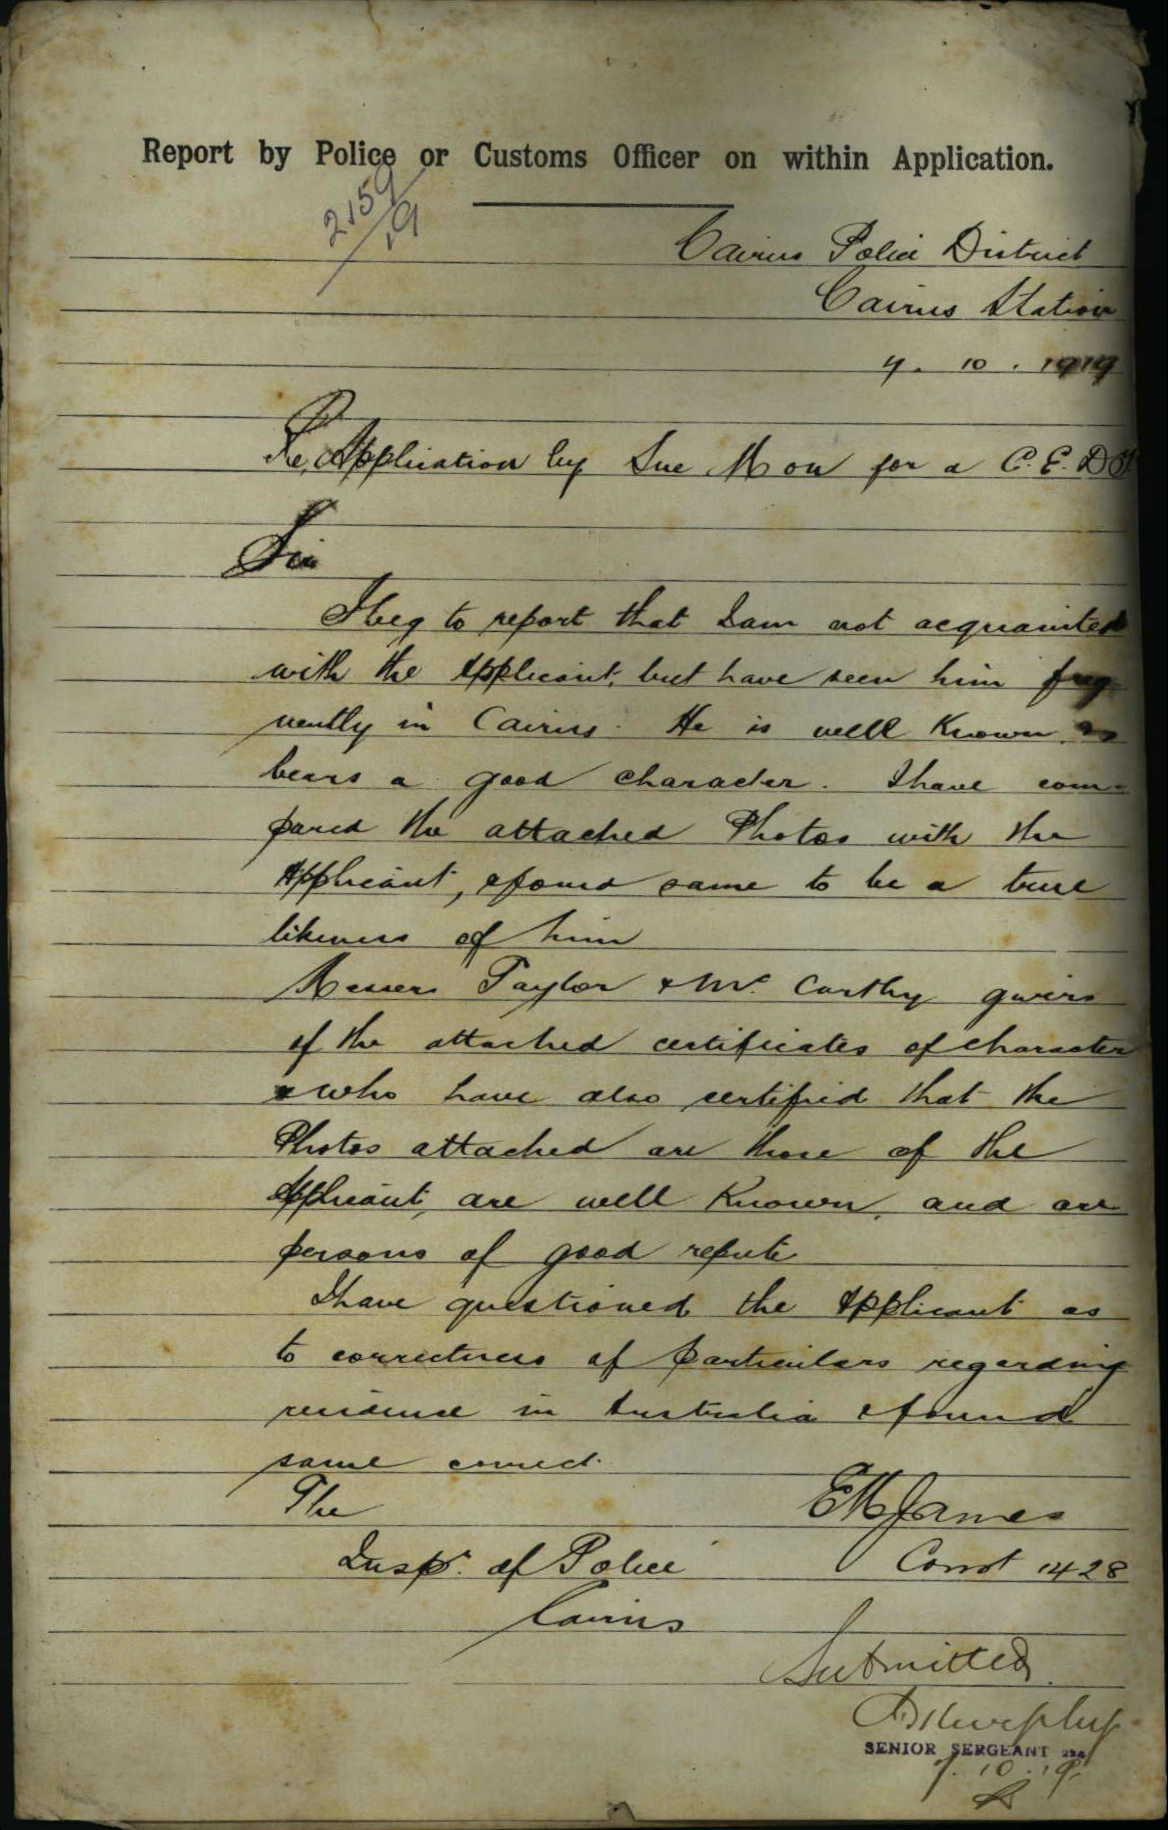 Report by Police or Customs Officer on within Application.
2159/19
Cairns Police District
Cairns Station
7. 10. 1919
Re, Application by Sue Mow for a C. E. D T
Sir
I beg to report that I am not acquainted
with the Applicant, but have seen him freq
uently in Cairns. He is well Known &
bears a good character. I have com-
pared the attached Photos with the
Applicant, & found same to be a true
likeness of him
Messrs Taylor & Mc. Carthy givers
of the attached certificates of character
& who have also certified that the
Photos attached are those of the
Applicant, are well Known, and are
persons of good repute
I have questioned the Applicant as
to correctness of particulars regarding
residence in Australia & found
same correct.
The
Inspr. of Police
Cairns
EM James
Const 1428
Submitted
Murphy
SENIOR SERGEANT
7. 10. 19.